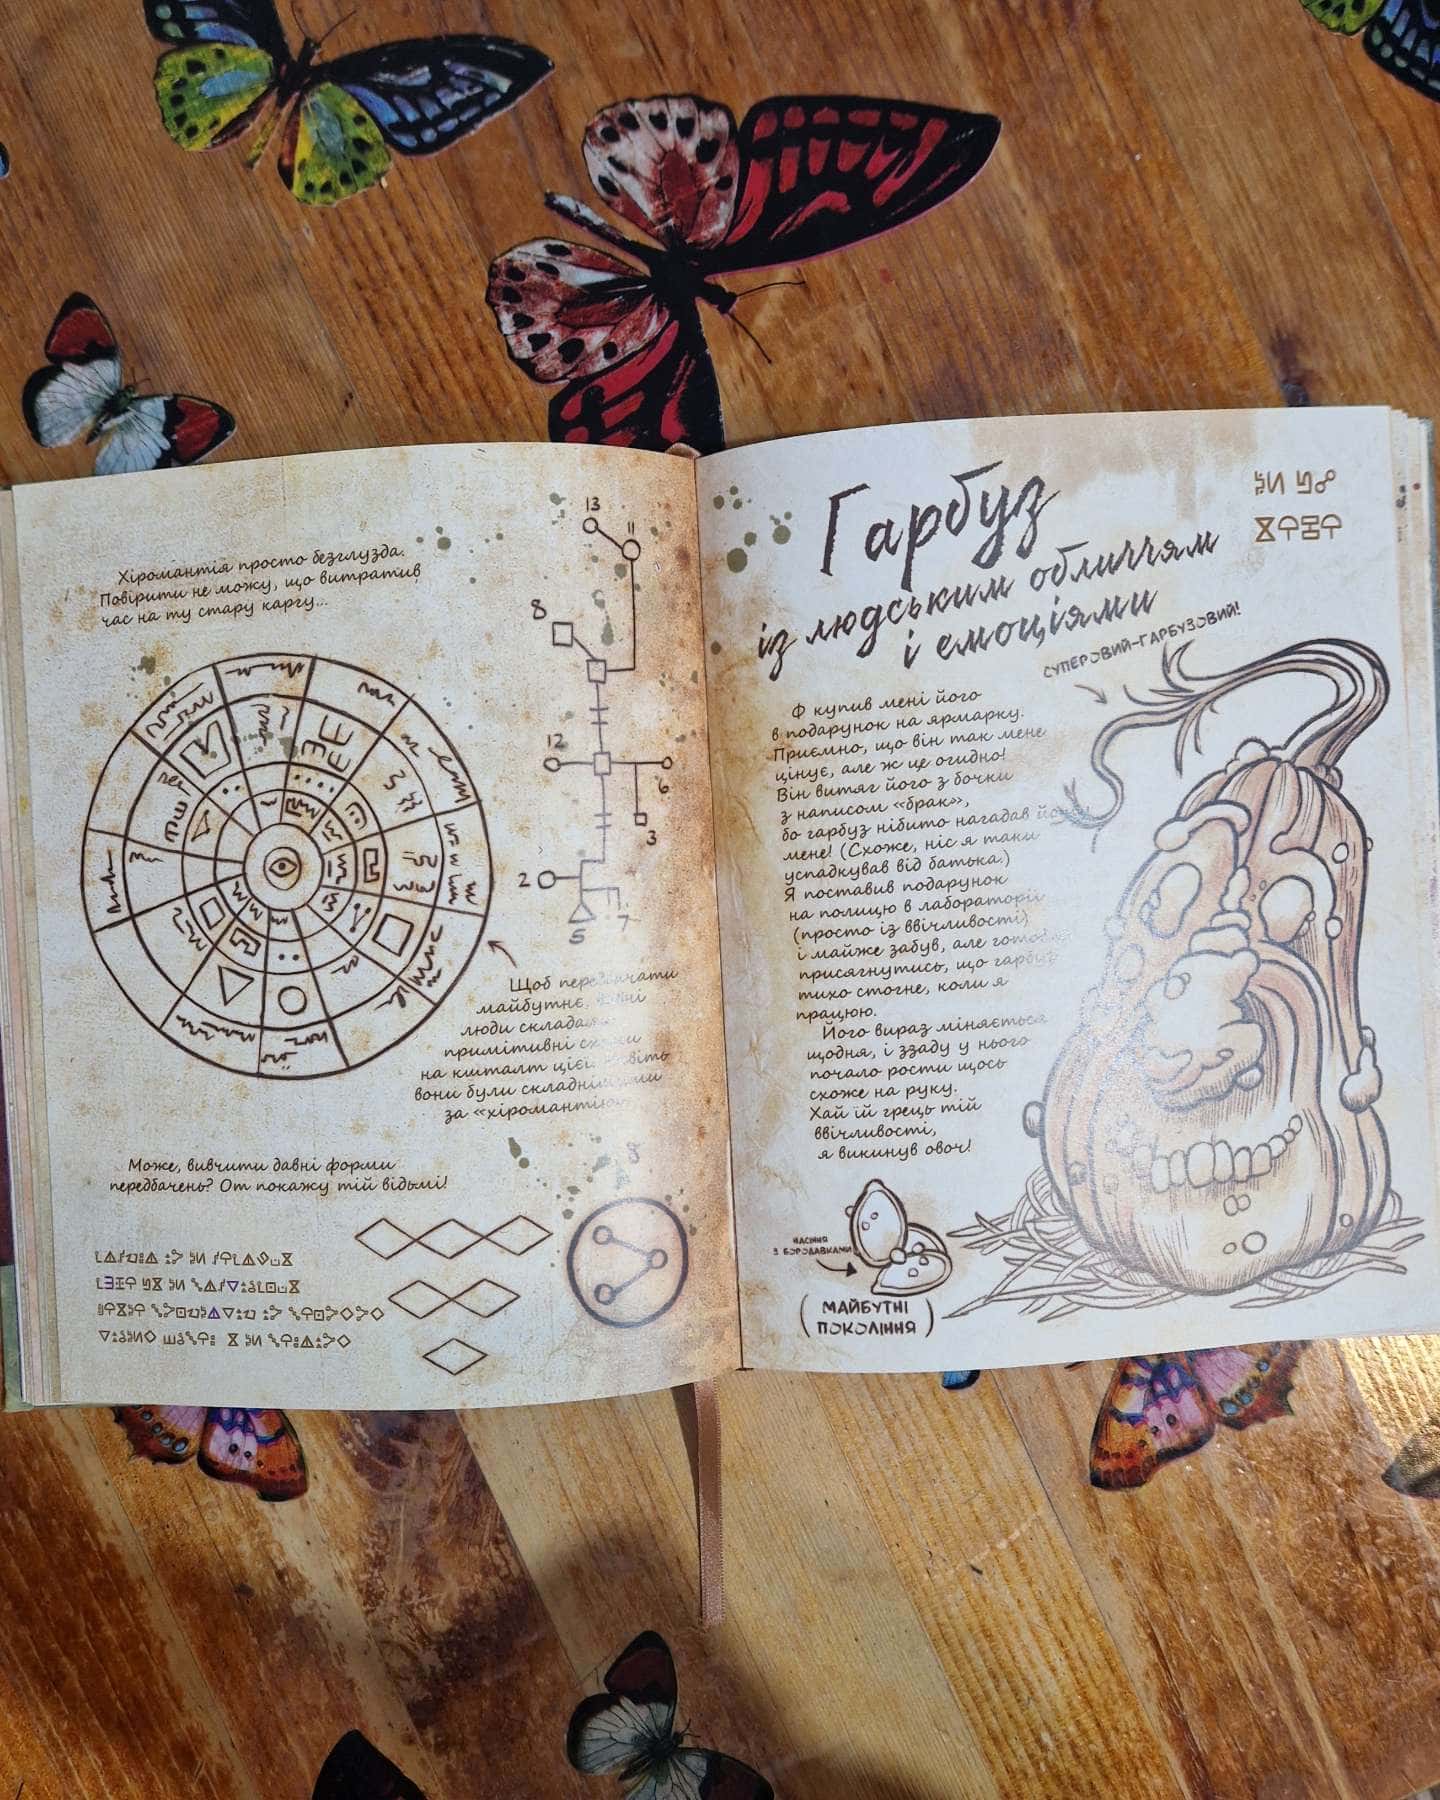 Хіромантія просто безглузда.
Повірити не можу, що витратив
час на ту стару каргу...
13
11
8
12
6
3
2
5
7
Щоб передбачати
майбутнє,
люди складали
примітивні схеми
на кшталт цієї. Навіть
вони були складнішими
за «хіромантію».
Може, вивчити давні форми
передбачень? От покажу тій відьмі!
8
Гарбуз
із людським обличчям
і емоціями
СУПЕРОВИЙ-ГАРБУЗОВИЙ!
Ф купив мені його
в подарунок на ярмарку.
Приємно, що він так мене
цінує, але ж це огидно!
Він витяг його з бочки
з написом «брак»,
бо гарбуз нібито нагадав йому
мене! (Схоже, ніс я таки
успадкував від батька.)
Я поставив подарунок
на полицю в лабораторії
(просто із ввічливості)
і майже забув, але готовий
присягнутись, що гарбуз
тихо стогне, коли я
працюю.
Його вираз міняється
щодня, і ззаду у нього
почало рости щось
схоже на руку.
Хай їй грець тій
ввічливості,
я викинув овоч!
НАСІННЯ
З БОРОДАВКАМИ
(МАЙБУТНІ
ПОКОЛІННЯ)